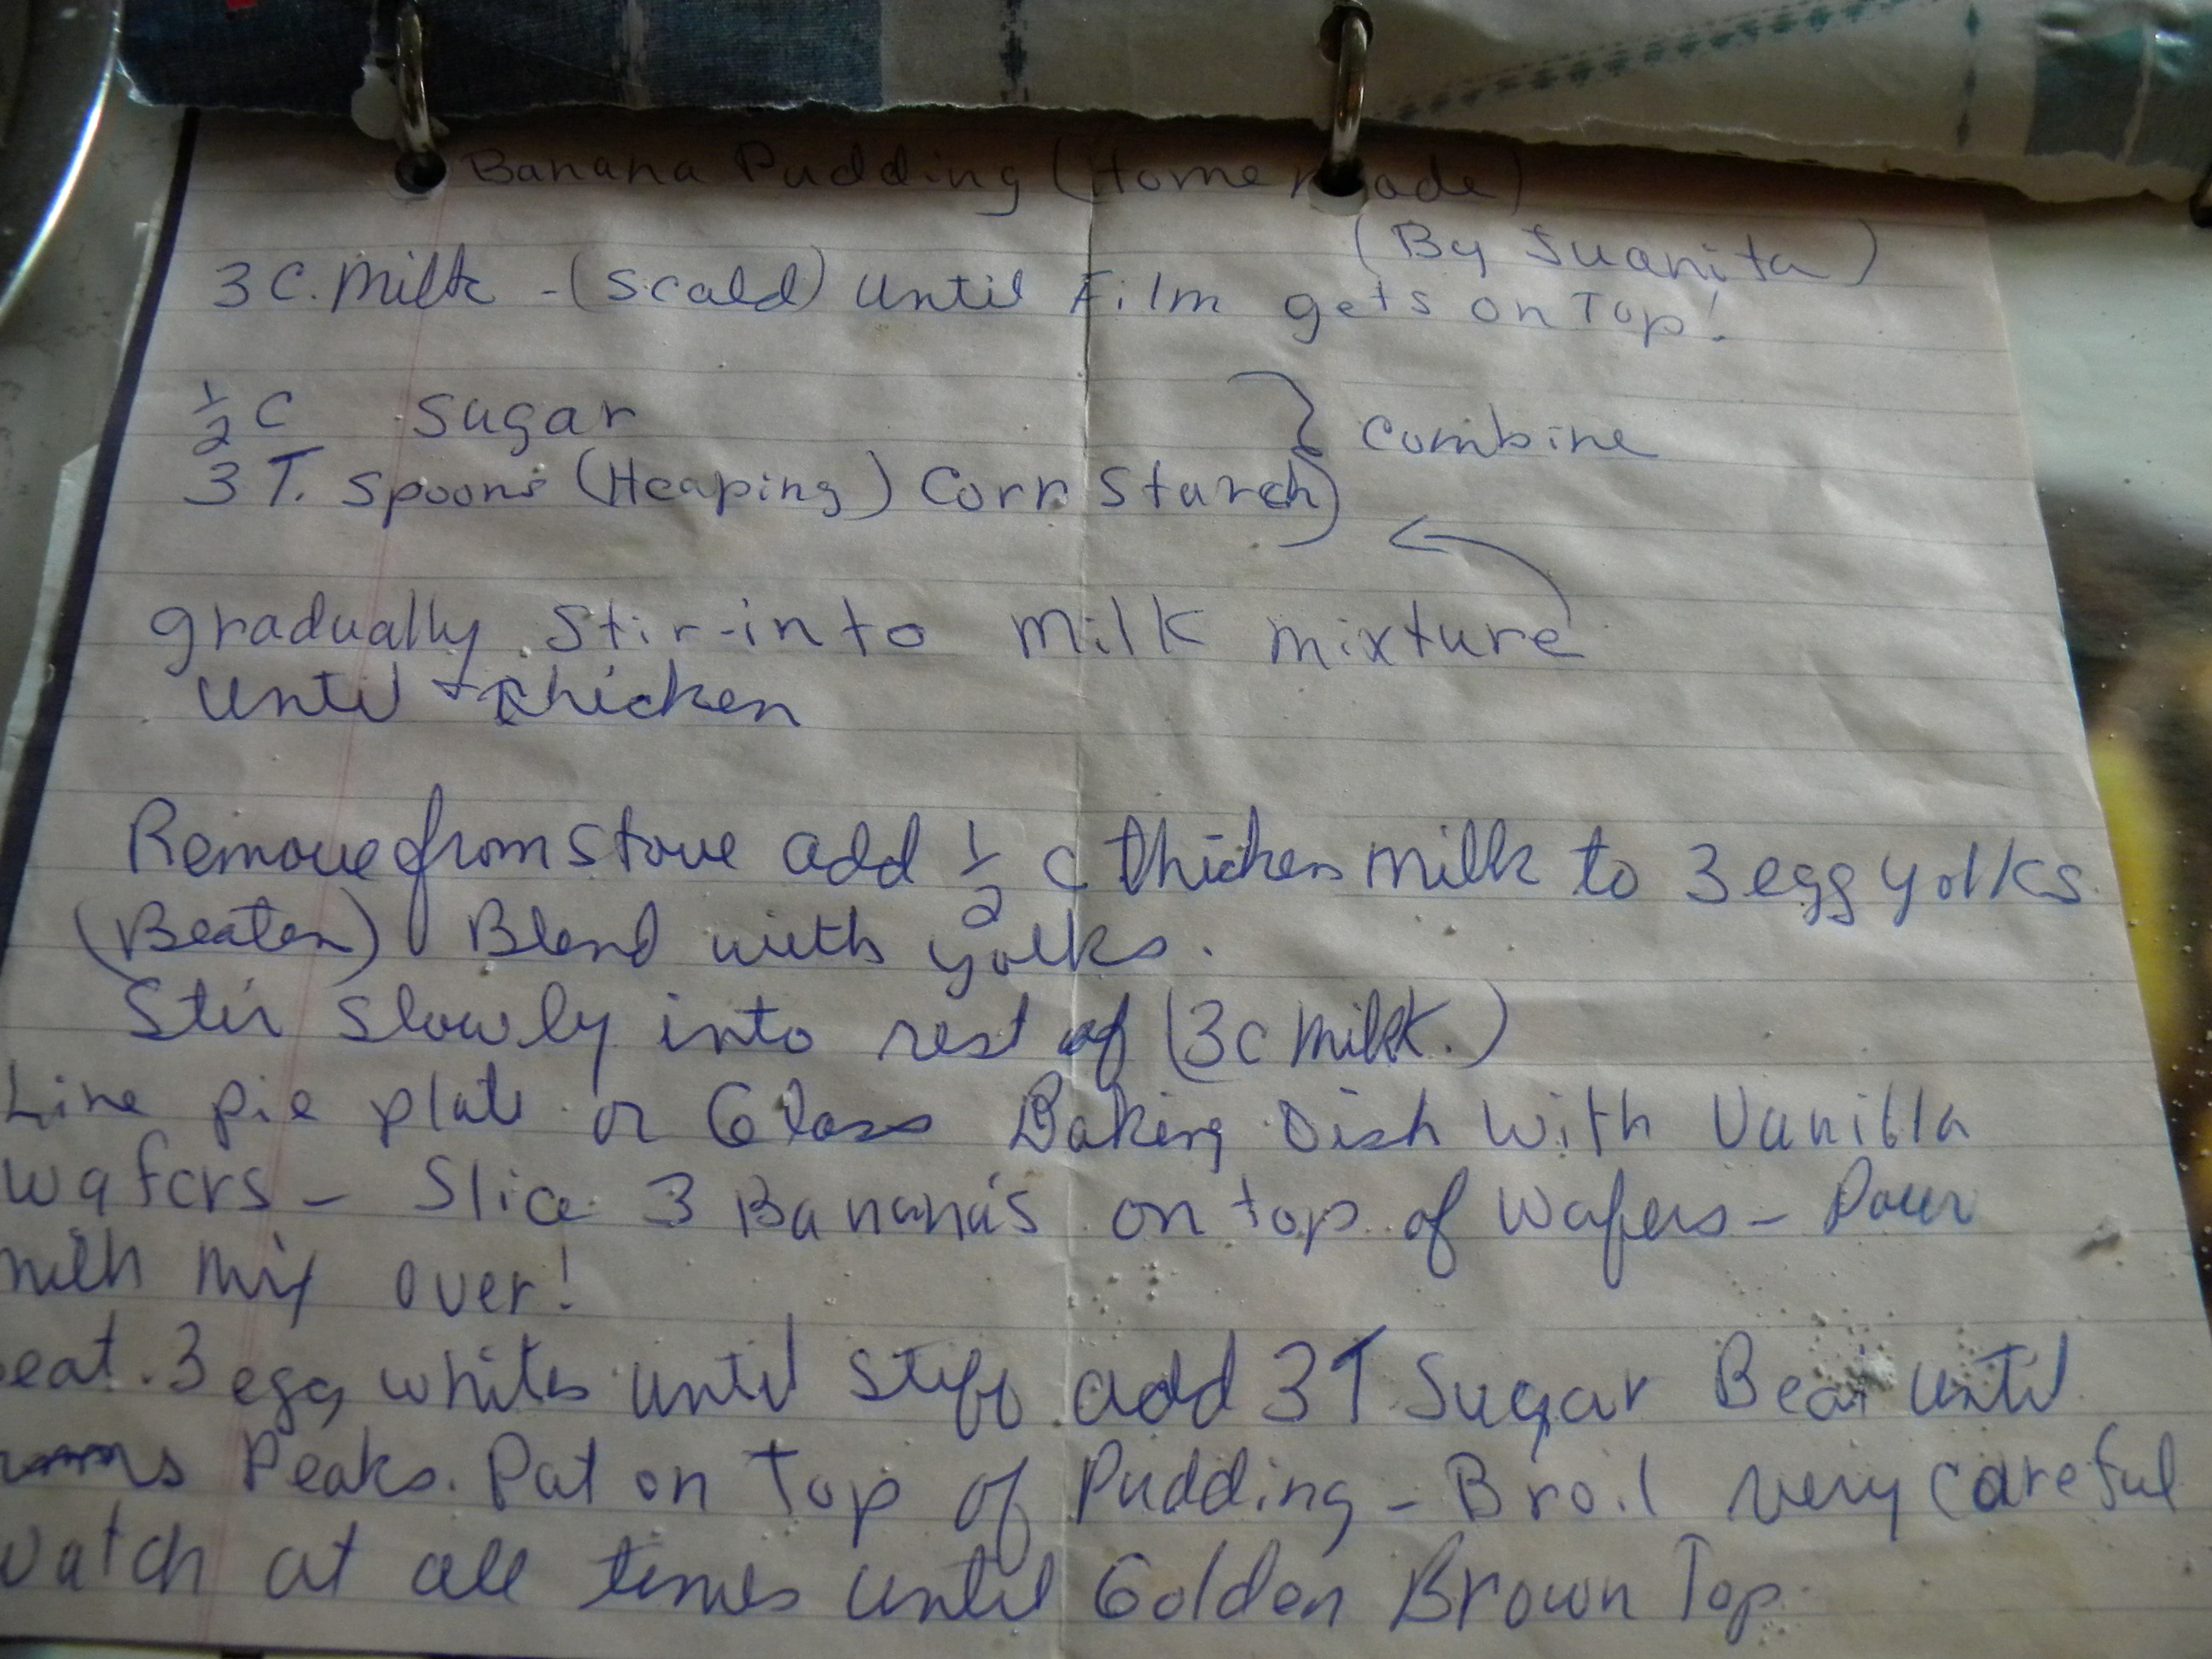 Banana Pudding (Homemade)
(By Juanita)
3 C. Milk - (Scald) until Film gets on Top!
1/2 C Sugar
} Combine
3 T. Spoons (Heaping) Corn Starch
gradually stir-into Milk mixture
until thicken
Remove from stove add 1/2 c thicken milk to 3 egg yolks
(Beaten) Blend with yolks.
Stir slowly into rest of (3 c Milk.)
Line pie plate or Glass Baking Dish with Vanilla
wafers - Slice 3 Banana's on top of wafers - Pour
milk mix over!
eat 3 egg whites until stiff add 3 T Sugar Beat until
Peaks. Pat on Top of Pudding - Broil very careful
watch at all times until Golden Brown Top.